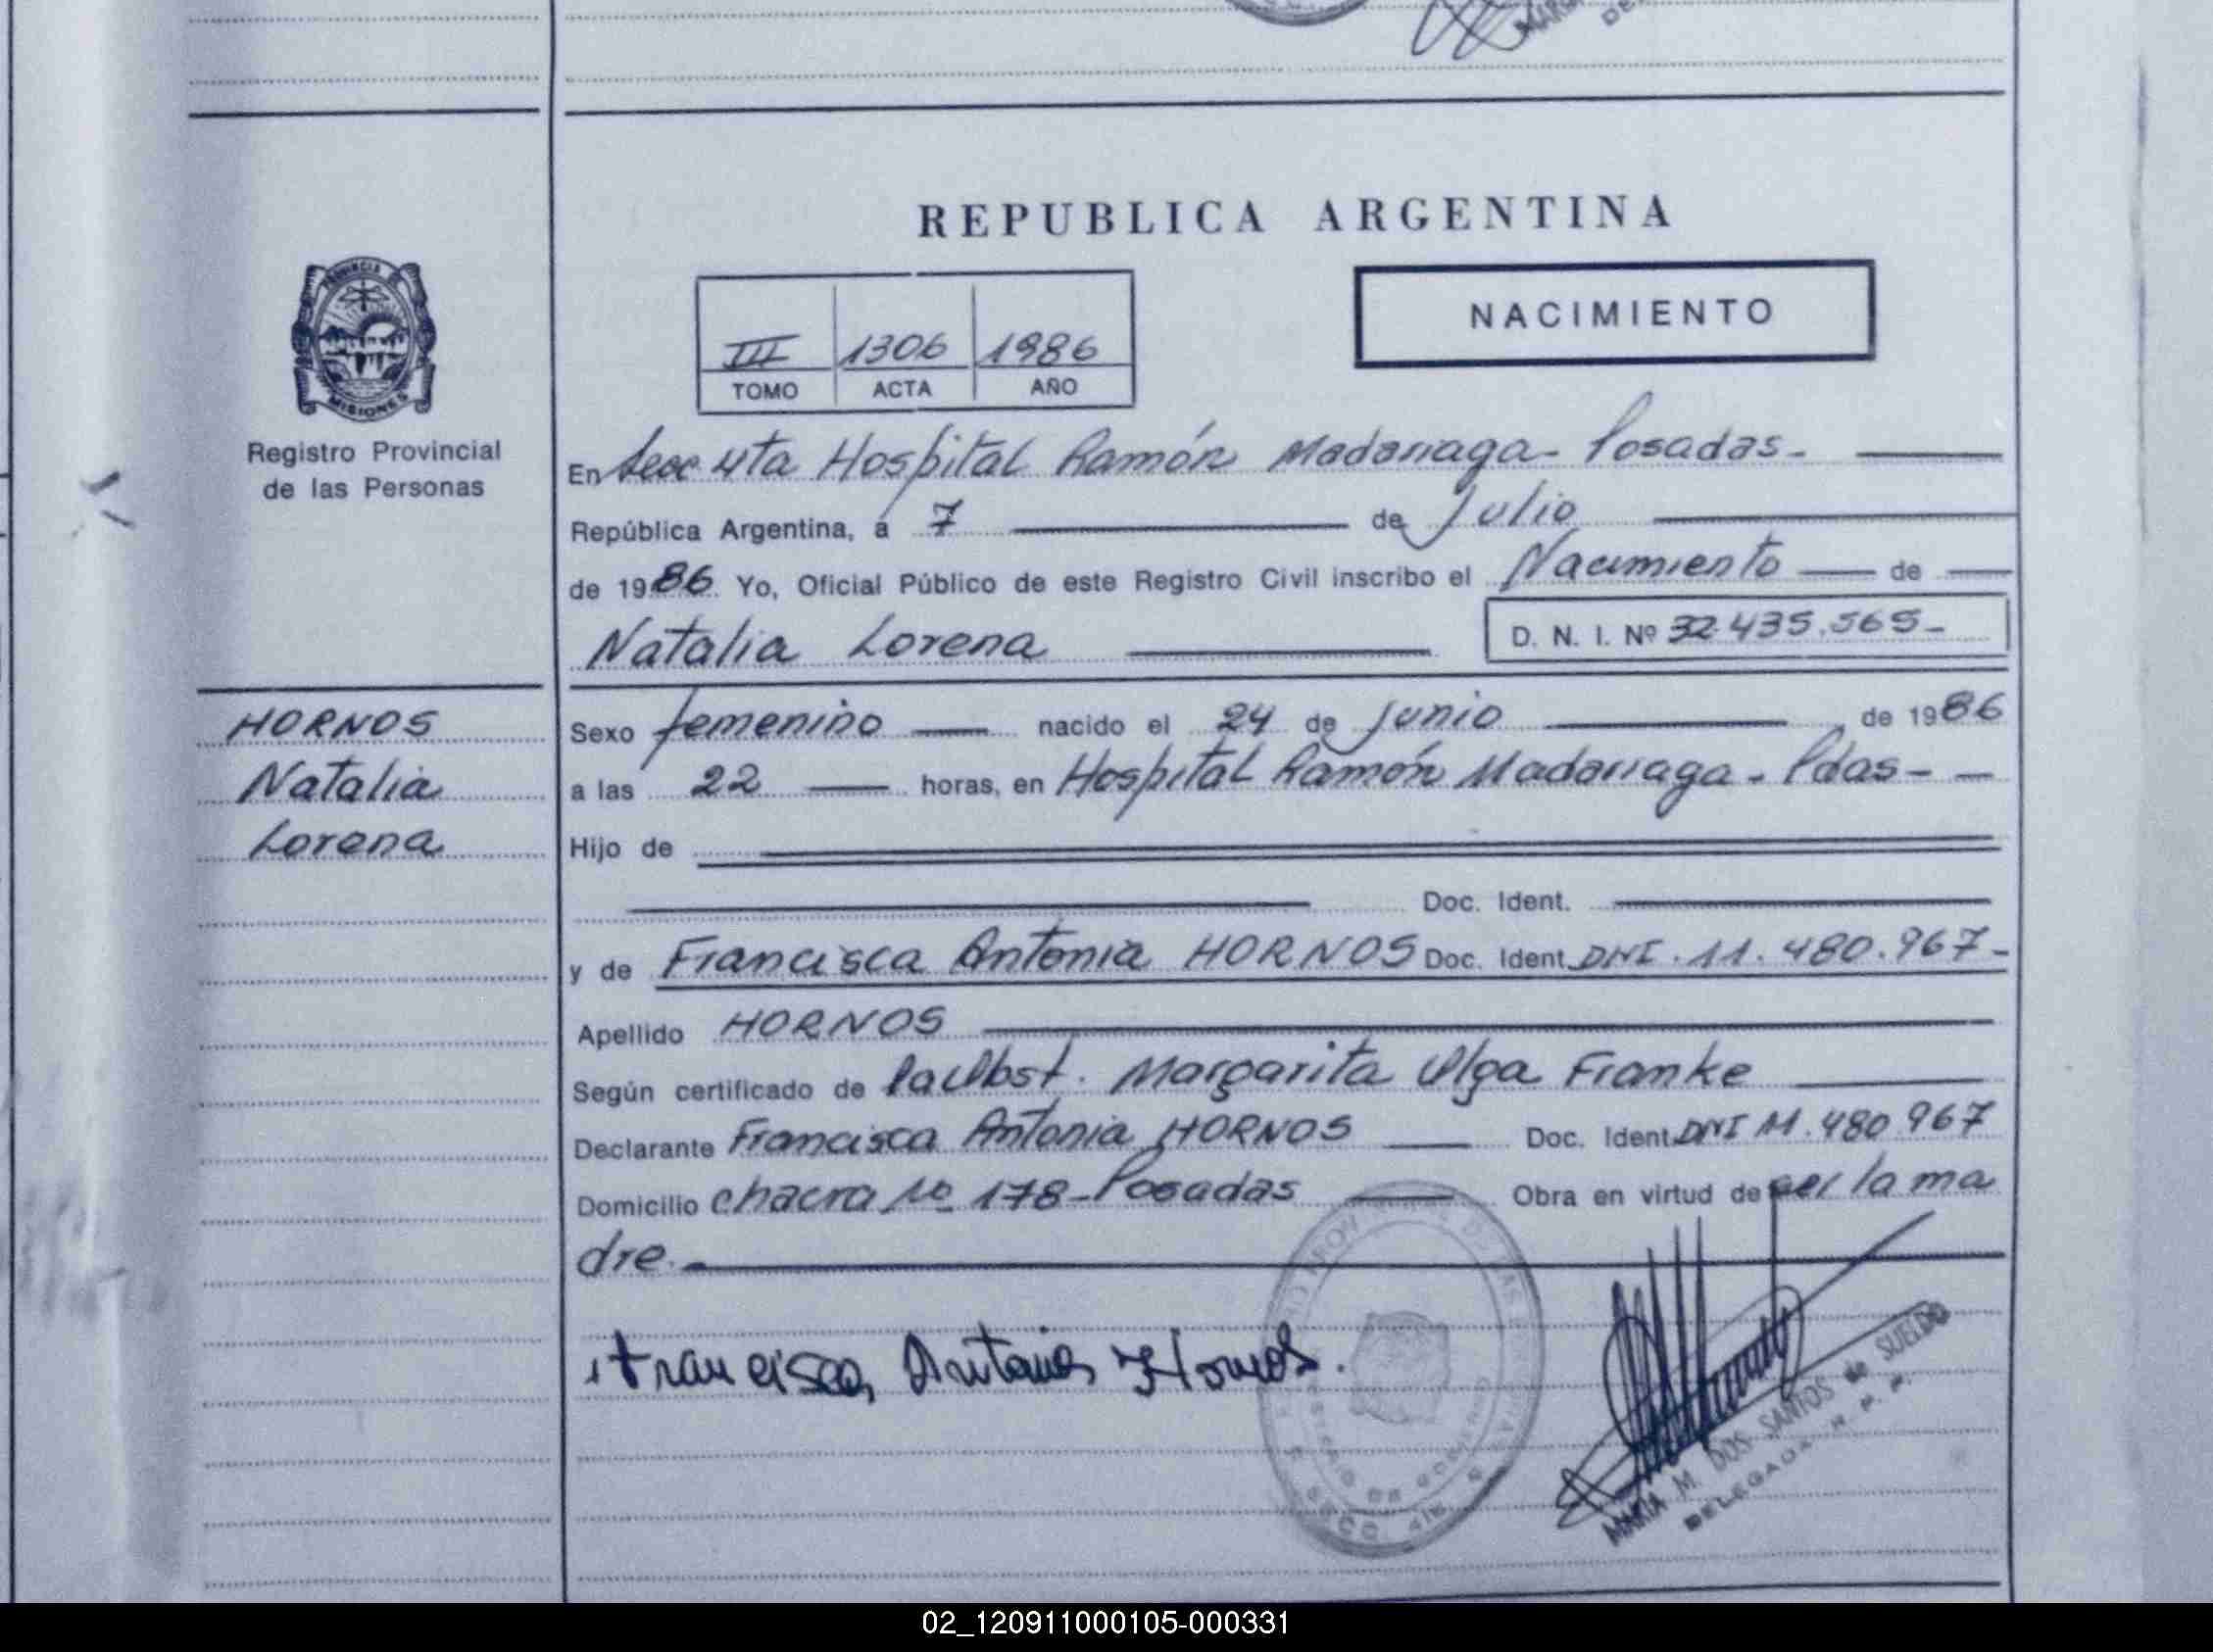 REPUBLICA ARGENTINA
NACIMIENTO
III 1306 1986
TOMO ACTA AÑO
PROVINCIA DE
MISIONES
Registro Provincial
de las Personas
En Secc 4ta Hospital Ramón Madariaga - Posadas -
República Argentina, a 7 de Julio
de 1986 Yo, Oficial Público de este Registro Civil inscribo el Nacimiento de
Natalia Lorena D. N. I. Nº 32.435.565 -
HORNOS
Natalia
Lorena
Sexo femenino nacido el 24 de junio de 1986
a las 22 horas, en Hospital Ramón Madariaga - Pdas -
Hijo de
Doc. Ident.
y de Francisca Antonia HORNOS Doc. Ident. DNI. 11.480.967 -
Apellido HORNOS
Según certificado de la Obst. Margarita Olga Franke
Declarante Francisca Antonia HORNOS Doc. Ident. DNI 11.480 967
Domicilio chacra Nº 178 - Posadas Obra en virtud de ser la ma
dre.
Francisca Antonia Hornos.
MARIA M. DOS SANTOS de SUELDO
DELEGADA R. P. P.
02_120911000105-000331